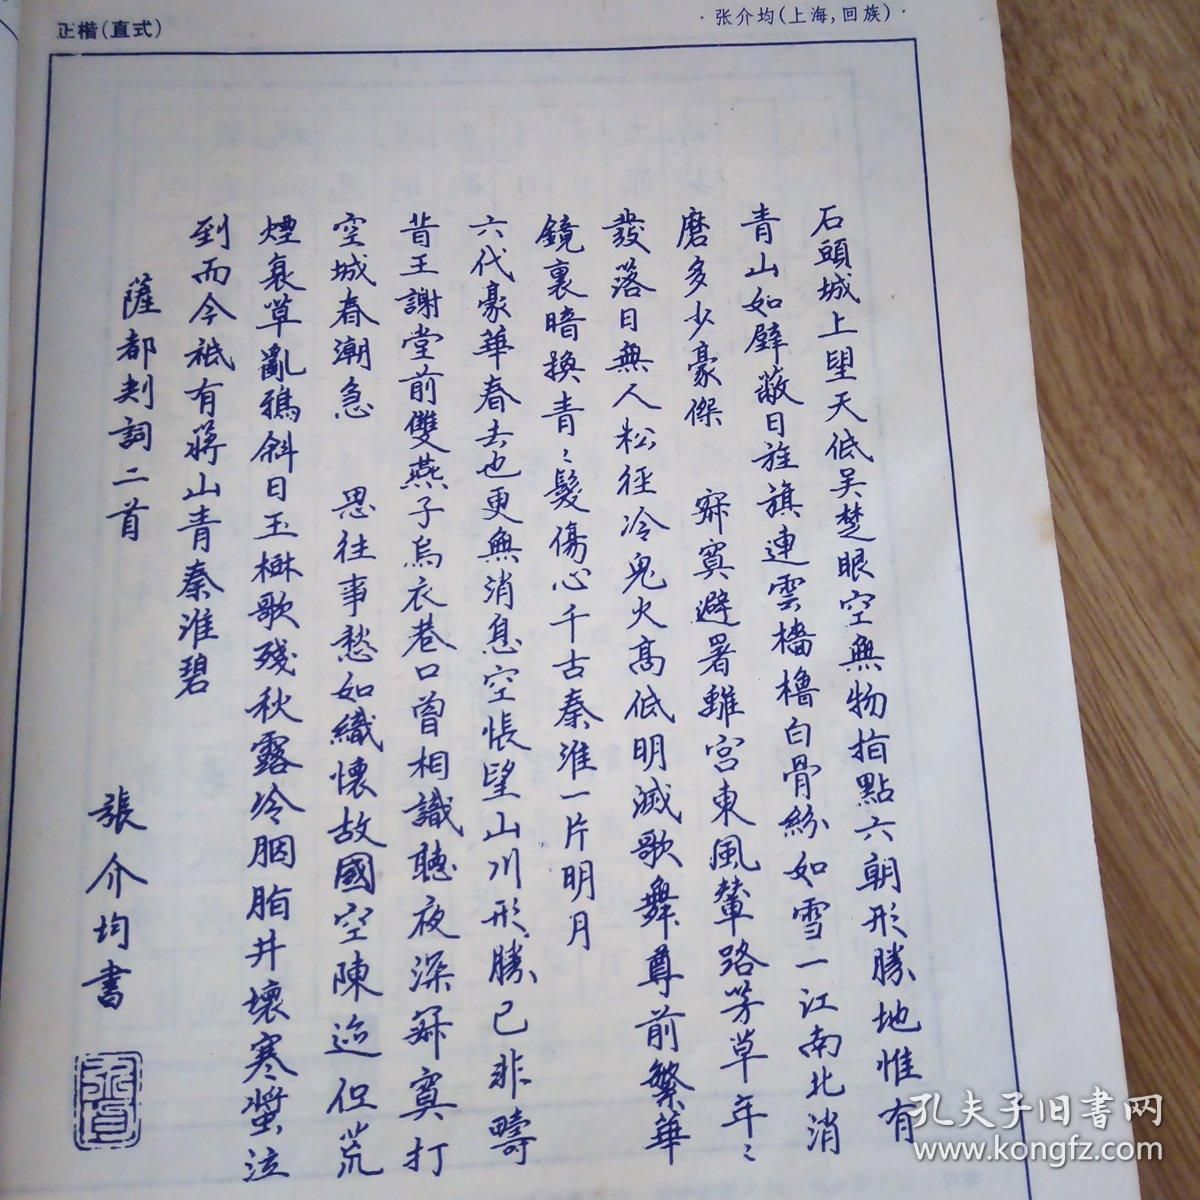 正楷(直式)
·张介均(上海,回族)·
石頭城上望天低吴楚眼空無物指點六朝形勝地惟有
青山如壁蔽日旌旗連雲檣櫓白骨紛如雪一江南北消
磨多少豪傑 寂寞避暑離宮東風輦路芳草年〻
發落日無人松徑冷鬼火高低明滅歌舞尊前繁華
鏡裏暗換青〻髮傷心千古秦淮一片明月
六代豪華春去也更無消息空悵望山川形勝已非疇
昔王謝堂前雙燕子烏衣巷口曾相識聽夜深寂寞打
空城春潮急 思往事愁如織懷故國空陳迹但荒
煙衰草亂鴉斜日玉樹歌殘秋露冷胭脂井壞寒螿泣
到而今祗有蔣山青秦淮碧
薩都剌詞二首
張介均書
孔夫子旧书网
www.kongfz.com